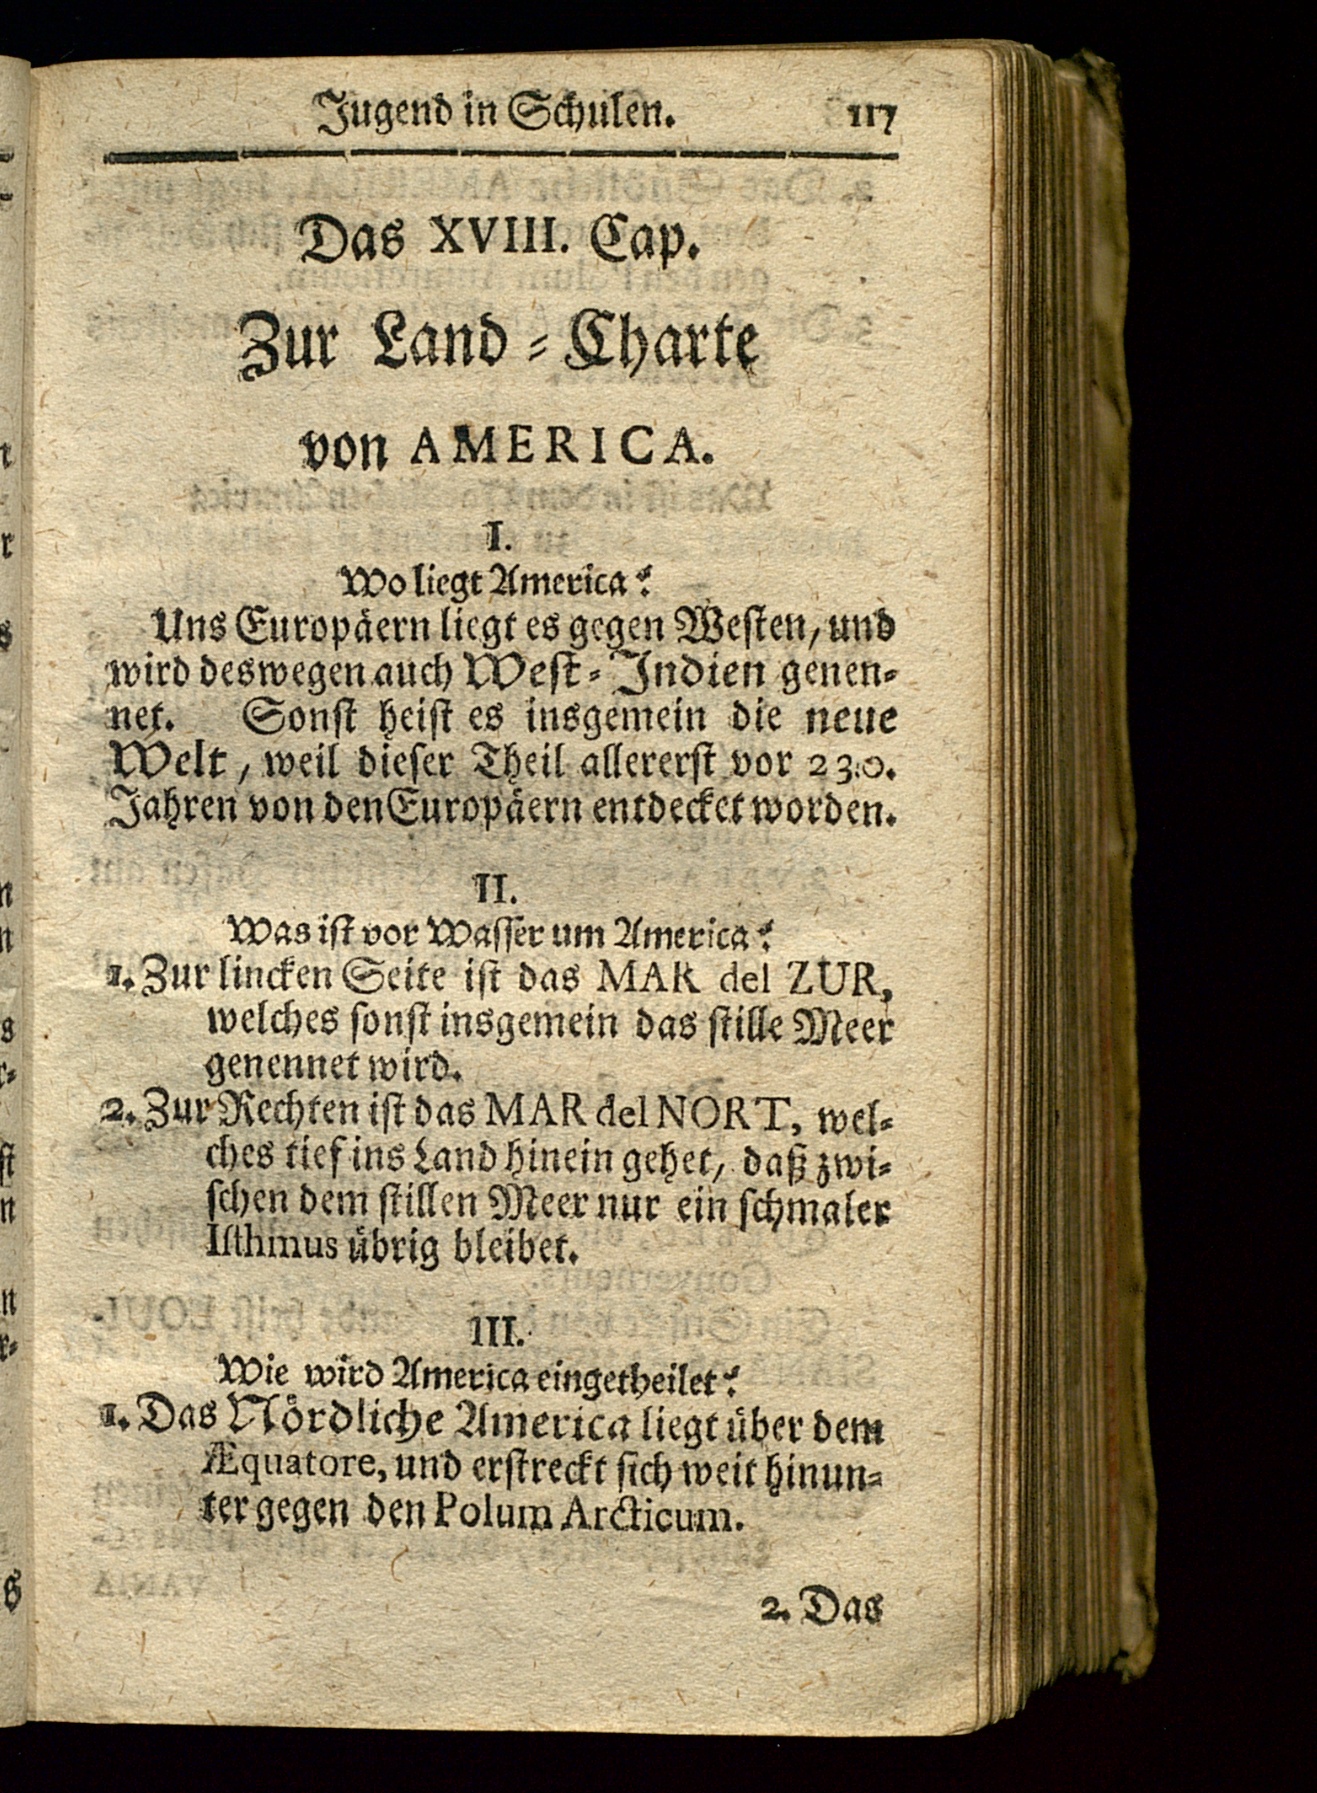 Jugend in Schulen. 117
Das XVIII. Cap.
Zur Land-Charte
von AMERICA.
I.
Wo liegt America?
Uns Europäern liegt es gegen Westen, und
wird deswegen auch West-Indien genen-
net. Sonst heist es insgemein die neue
Welt, weil dieser Theil allererst vor 230.
Jahren von den Europäern entdecket worden.
II.
Was ist vor Wasser um America?
1. Zur lincken Seite ist das MAR del ZUR,
welches sonst insgemein das stille Meer
genennet wird.
2. Zur Rechten ist das MAR del NORT, wel-
ches tief ins Land hinein gehet, daß zwi-
schen dem stillen Meer nur ein schmaler
Isthmus übrig bleibet.
III.
Wie wird America eingetheilet?
1. Das Nördliche America liegt über dem
Æquatore, und erstreckt sich weit hinun-
ter gegen den Polum Arcticum.
2. Das